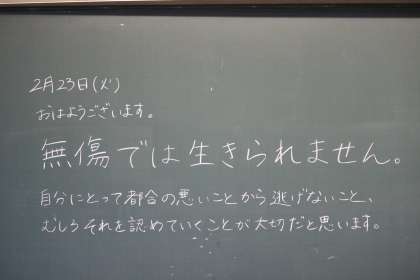 2月23日(火)
おはようございます。
無傷では生きられません。
自分にとって都合の悪いことから逃げないこと、
むしろそれを認めていくことが大切だと思います。